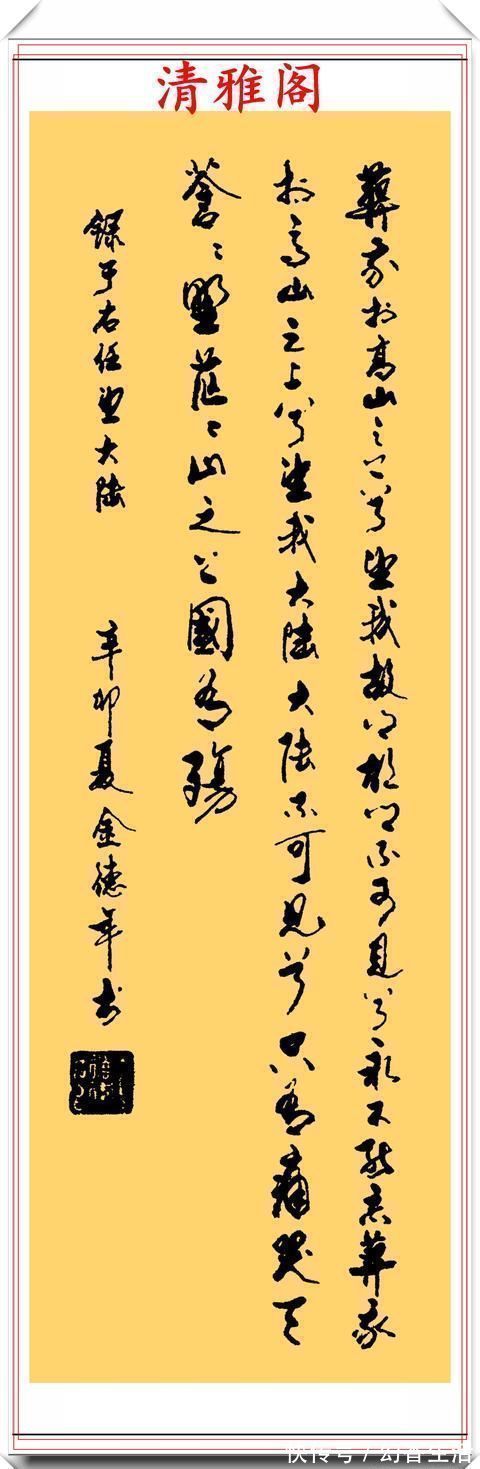 清雅阁
葬我扵高山之上兮望我故鄉故鄉不可見兮永不能忘葬我
扵高山之上兮望我大陸大陸不可見兮只有痛哭天
蒼〻野茫〻山之上國有殤
錄于右任望大陸 辛卯夏金德年书
快传号/幻香生活